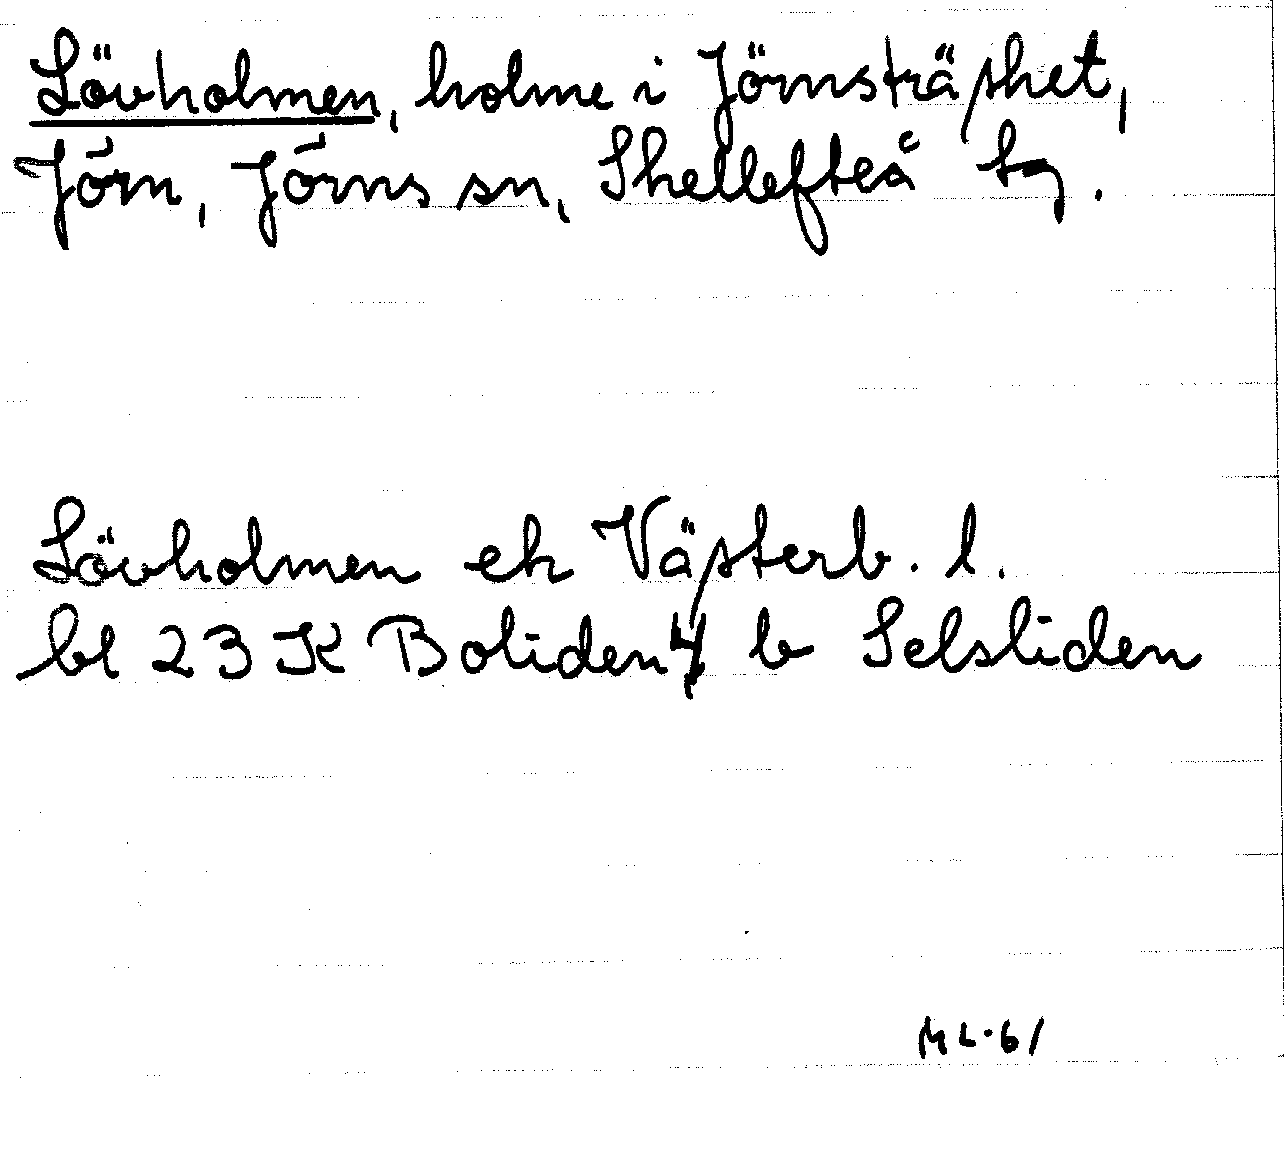 Lövholmen, holme i Jörnsträsket,
Jörn, Jörns sn, Skellefteå tg.
Lövholmen ek Västerb. l.
bl 23 K Boliden 4 b Selsliden
ML-61